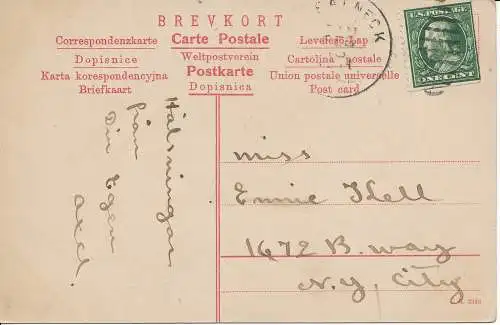 BREVKORT
Correspondenzkarte Carte Postale Levelezö-Lap
Dopisnice Weltpostverein Cartolina postale
Karta korespondencyjna Postkarte Union postale universelle
Briefkaart Dopisnica Post card
NECK
U.S. POSTAGE
ONE CENT
Hälsningar
från
Din Egen
Axel.
Miss
Emmie Kell
1672 B. way
N.Y. City